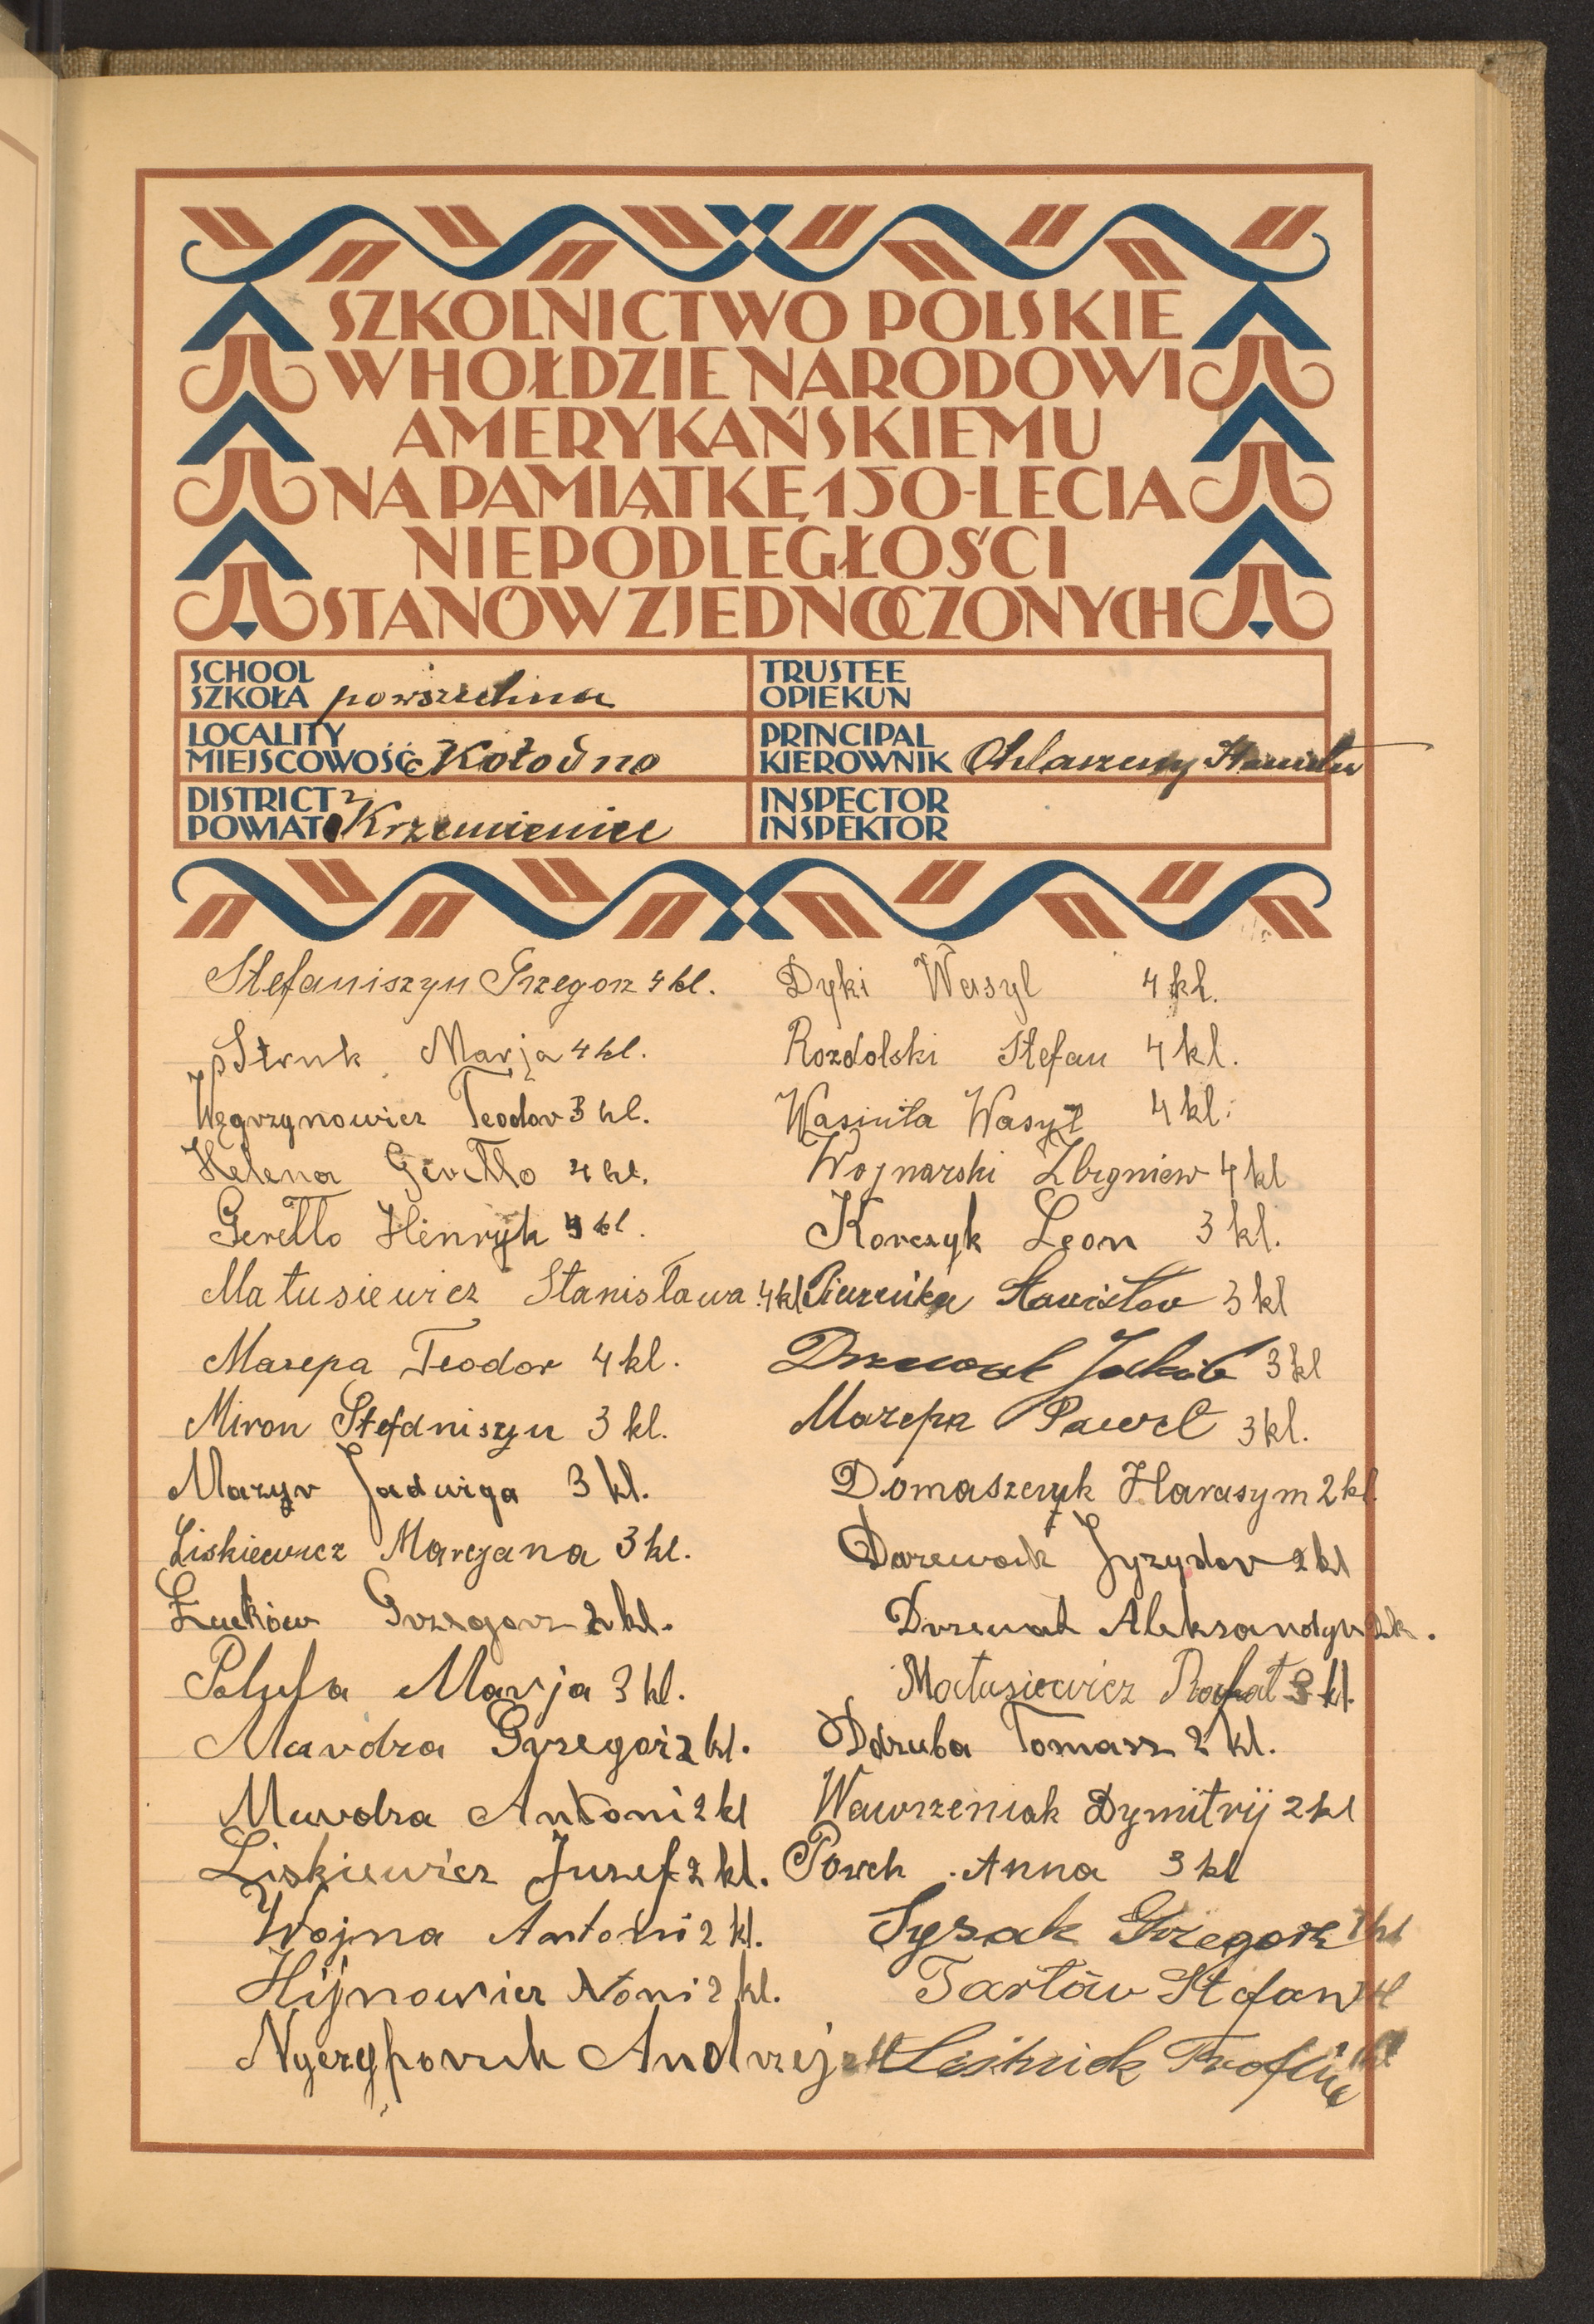 SZKOLNICTWO POLSKIE
W HOŁDZIE NARODOWI
AMERYKAŃSKIEMU
NA PAMIĄTKĘ 150-LECIA
NIEPODLEGŁOŚCI
STANÓW ZJEDNOCZONYCH
SCHOOL
SZKOŁA powszechna
TRUSTEE
OPIEKUN
LOCALITY
MIEJSCOWOŚĆ Kołodno
PRINCIPAL
KIEROWNIK
DISTRICT
POWIAT Krzemieniec
INSPECTOR
INSPEKTOR
Stefaniszyn Grzegorz 4 kl.
Struk Marja 4 kl.
Węgrzynowicz Teodor 3 kl.
Helena Geretto 4 kl.
Geretto Henryk 4 kl.
Matusiewicz Stanisława 4 kl
Mazepa Teodor 4 kl.
Miron Stefaniszyn 3 kl.
Mazyr Jadwiga 3 kl.
Liskiewicz Marcjana 3 kl.
Łuców Grzegorz 2 kl.
Marja 3 kl.
Mavdra Grzegorz 2 kl.
Mavdra Antoni 2 kl
Liskiewicz Juzef 2 kl.
Wojna Antoni 2 kl.
Hijnowicz Noni 2 kl.
Andrzej
Dyki Wasyl 4 kl.
Rozdolski Stefan 4 kl.
Wasiuta Wasyl 4 kl.
Wojnarski Zbigniew 4 kl
Korczyk Leon 3 kl.
Stanisław 3 kl
Jakób 3 kl
Mazepa Paweł 3 kl.
Domaszczyk Harasym 2 kl
2 kl
Drzewak Aleksandyr 2 k.
Matusiewicz Rafał 3 kl.
Ddzuba Tomasz 2 kl.
Wawrzeniak Dymitrij 2 kl
Powch Anna 3 kl
Sysak Grzegorz
Tartāw Stefan
Leśniak